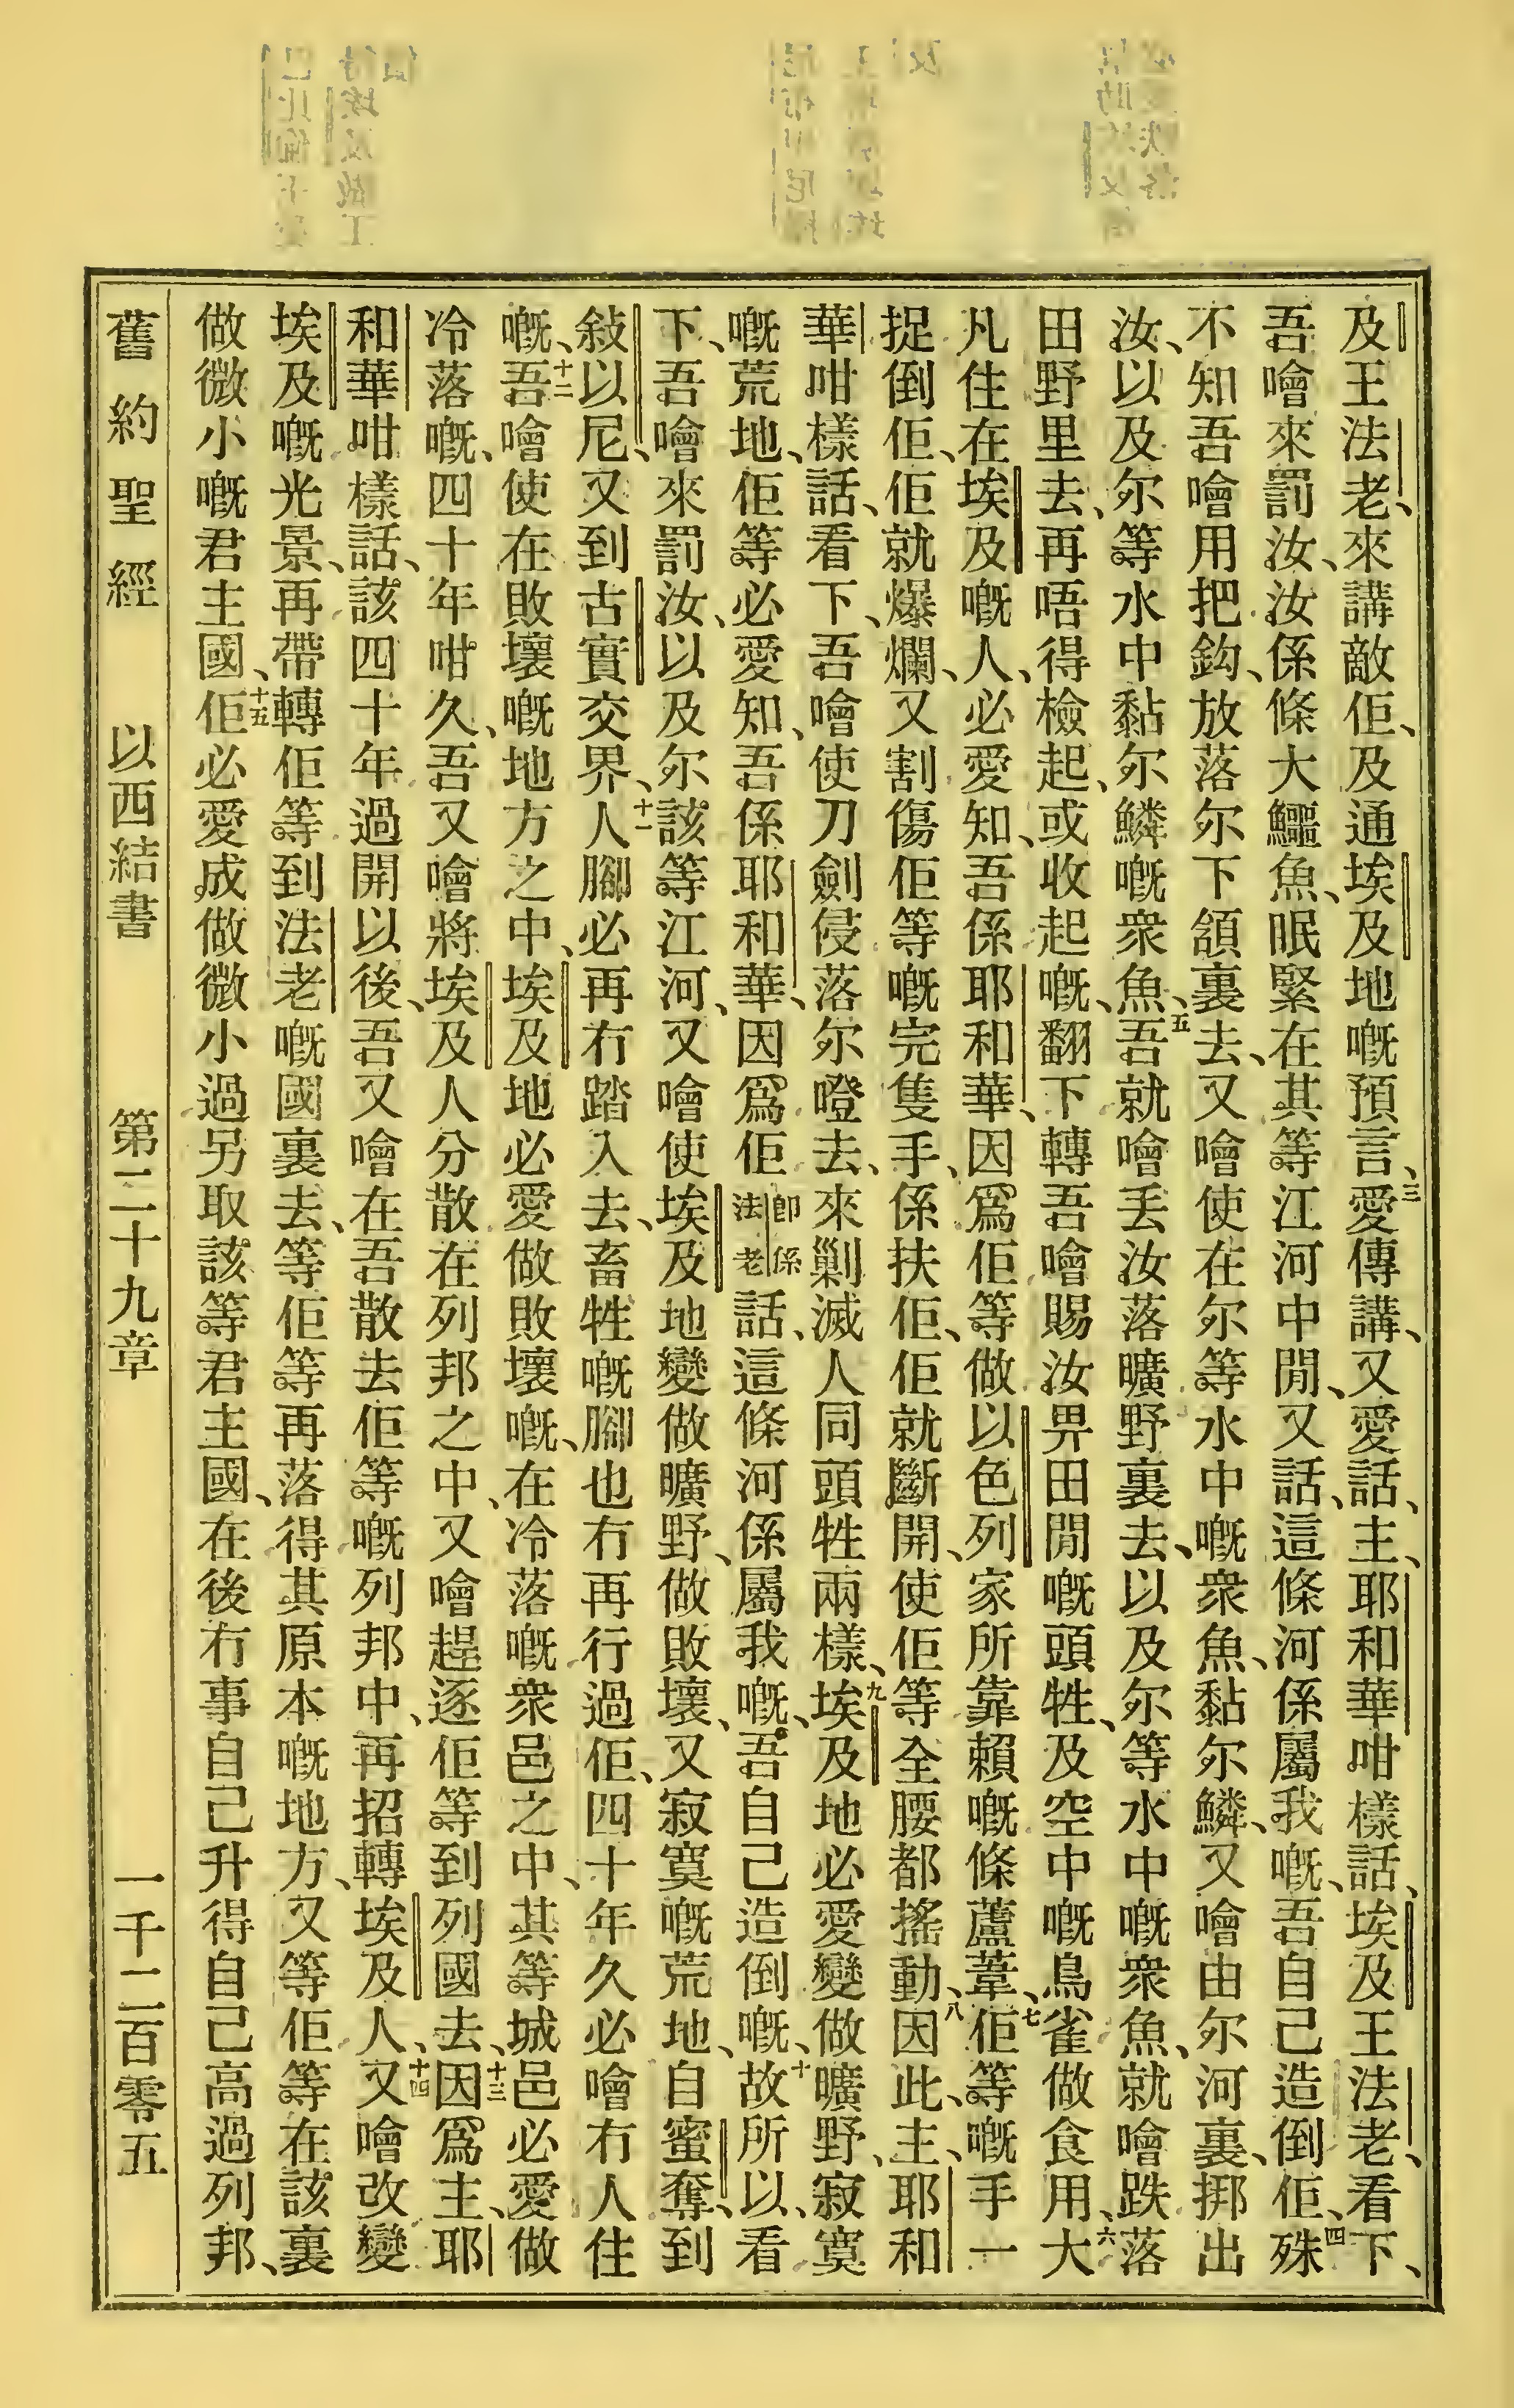 及王法老、來講敵佢、及通埃及地嘅預言、三愛傳講、又愛話、主、耶和華咁樣話、埃及王法老、看下、
吾噲來罰汝、汝係條大鱷魚、眠緊在其等江河中間、又話、這條河係屬我嘅、吾自己造倒佢、四殊
不知吾噲用把鈎、放落尔下頷裏去、又噲使在尔等水中嘅衆魚、黏尔鱗、又噲由尔河裏、揤出
汝、以及尔等水中黏尔鱗嘅衆魚、五吾就噲丢汝落曠野裏去、以及尔等水中嘅衆魚、就噲跌落
田野里去、再唔得檢起、或收起嘅、翻下轉吾噲賜汝畀田間嘅頭牲、及空中嘅鳥雀做食用、六大
凡住在埃及嘅人、必愛知、吾係耶和華、因爲佢等做以色列家所靠賴嘅條蘆葦、七佢等嘅手一
捉倒佢、佢就爆爛、又割傷佢等嘅完隻手、係扶佢、佢就斷開、使佢等全腰都搖動、八因此、主、耶和
華咁樣話、看下、吾噲使刀劍侵落尔嶝去、來剿滅人同頭牲兩樣、九埃及地必愛變做曠野、寂寞
嘅荒地、佢等必愛知、吾係耶和華、因爲佢卽係法老話、這條河係屬我嘅、吾自己造倒嘅、十故所以、看
下、吾噲來罰汝、以及尔該等江河、又噲使埃及地變做曠野、做敗壞、又寂寞嘅荒地、自蜜奪、到
敍以尼、又到古實交界、十一人腳必再冇踏入去、畜牲嘅腳也冇再行過佢、四十年久必噲冇人住
嘅、十二吾噲使在敗壞嘅地方之中、埃及地必愛做敗壞嘅、在冷落嘅衆邑之中、其等城邑必愛做
冷落嘅、四十年咁久、吾又噲將埃及人分散在列邦之中、又噲趕逐佢等到列國去、十三因爲主、耶
和華咁樣話、該四十年過開以後、吾又噲在吾散去佢等嘅列邦中、再招轉埃及人、十四又噲改變
埃及嘅光景、再帶轉佢等到法老嘅國裏去、等佢等再落得其原本嘅地方、又等佢等在該裏
做微小嘅君主國、十五佢必愛成做微小過另取該等君主國、在後冇事自己升得自己高過列邦、
舊約聖經 以西結書 第二十九章 一千二百零五